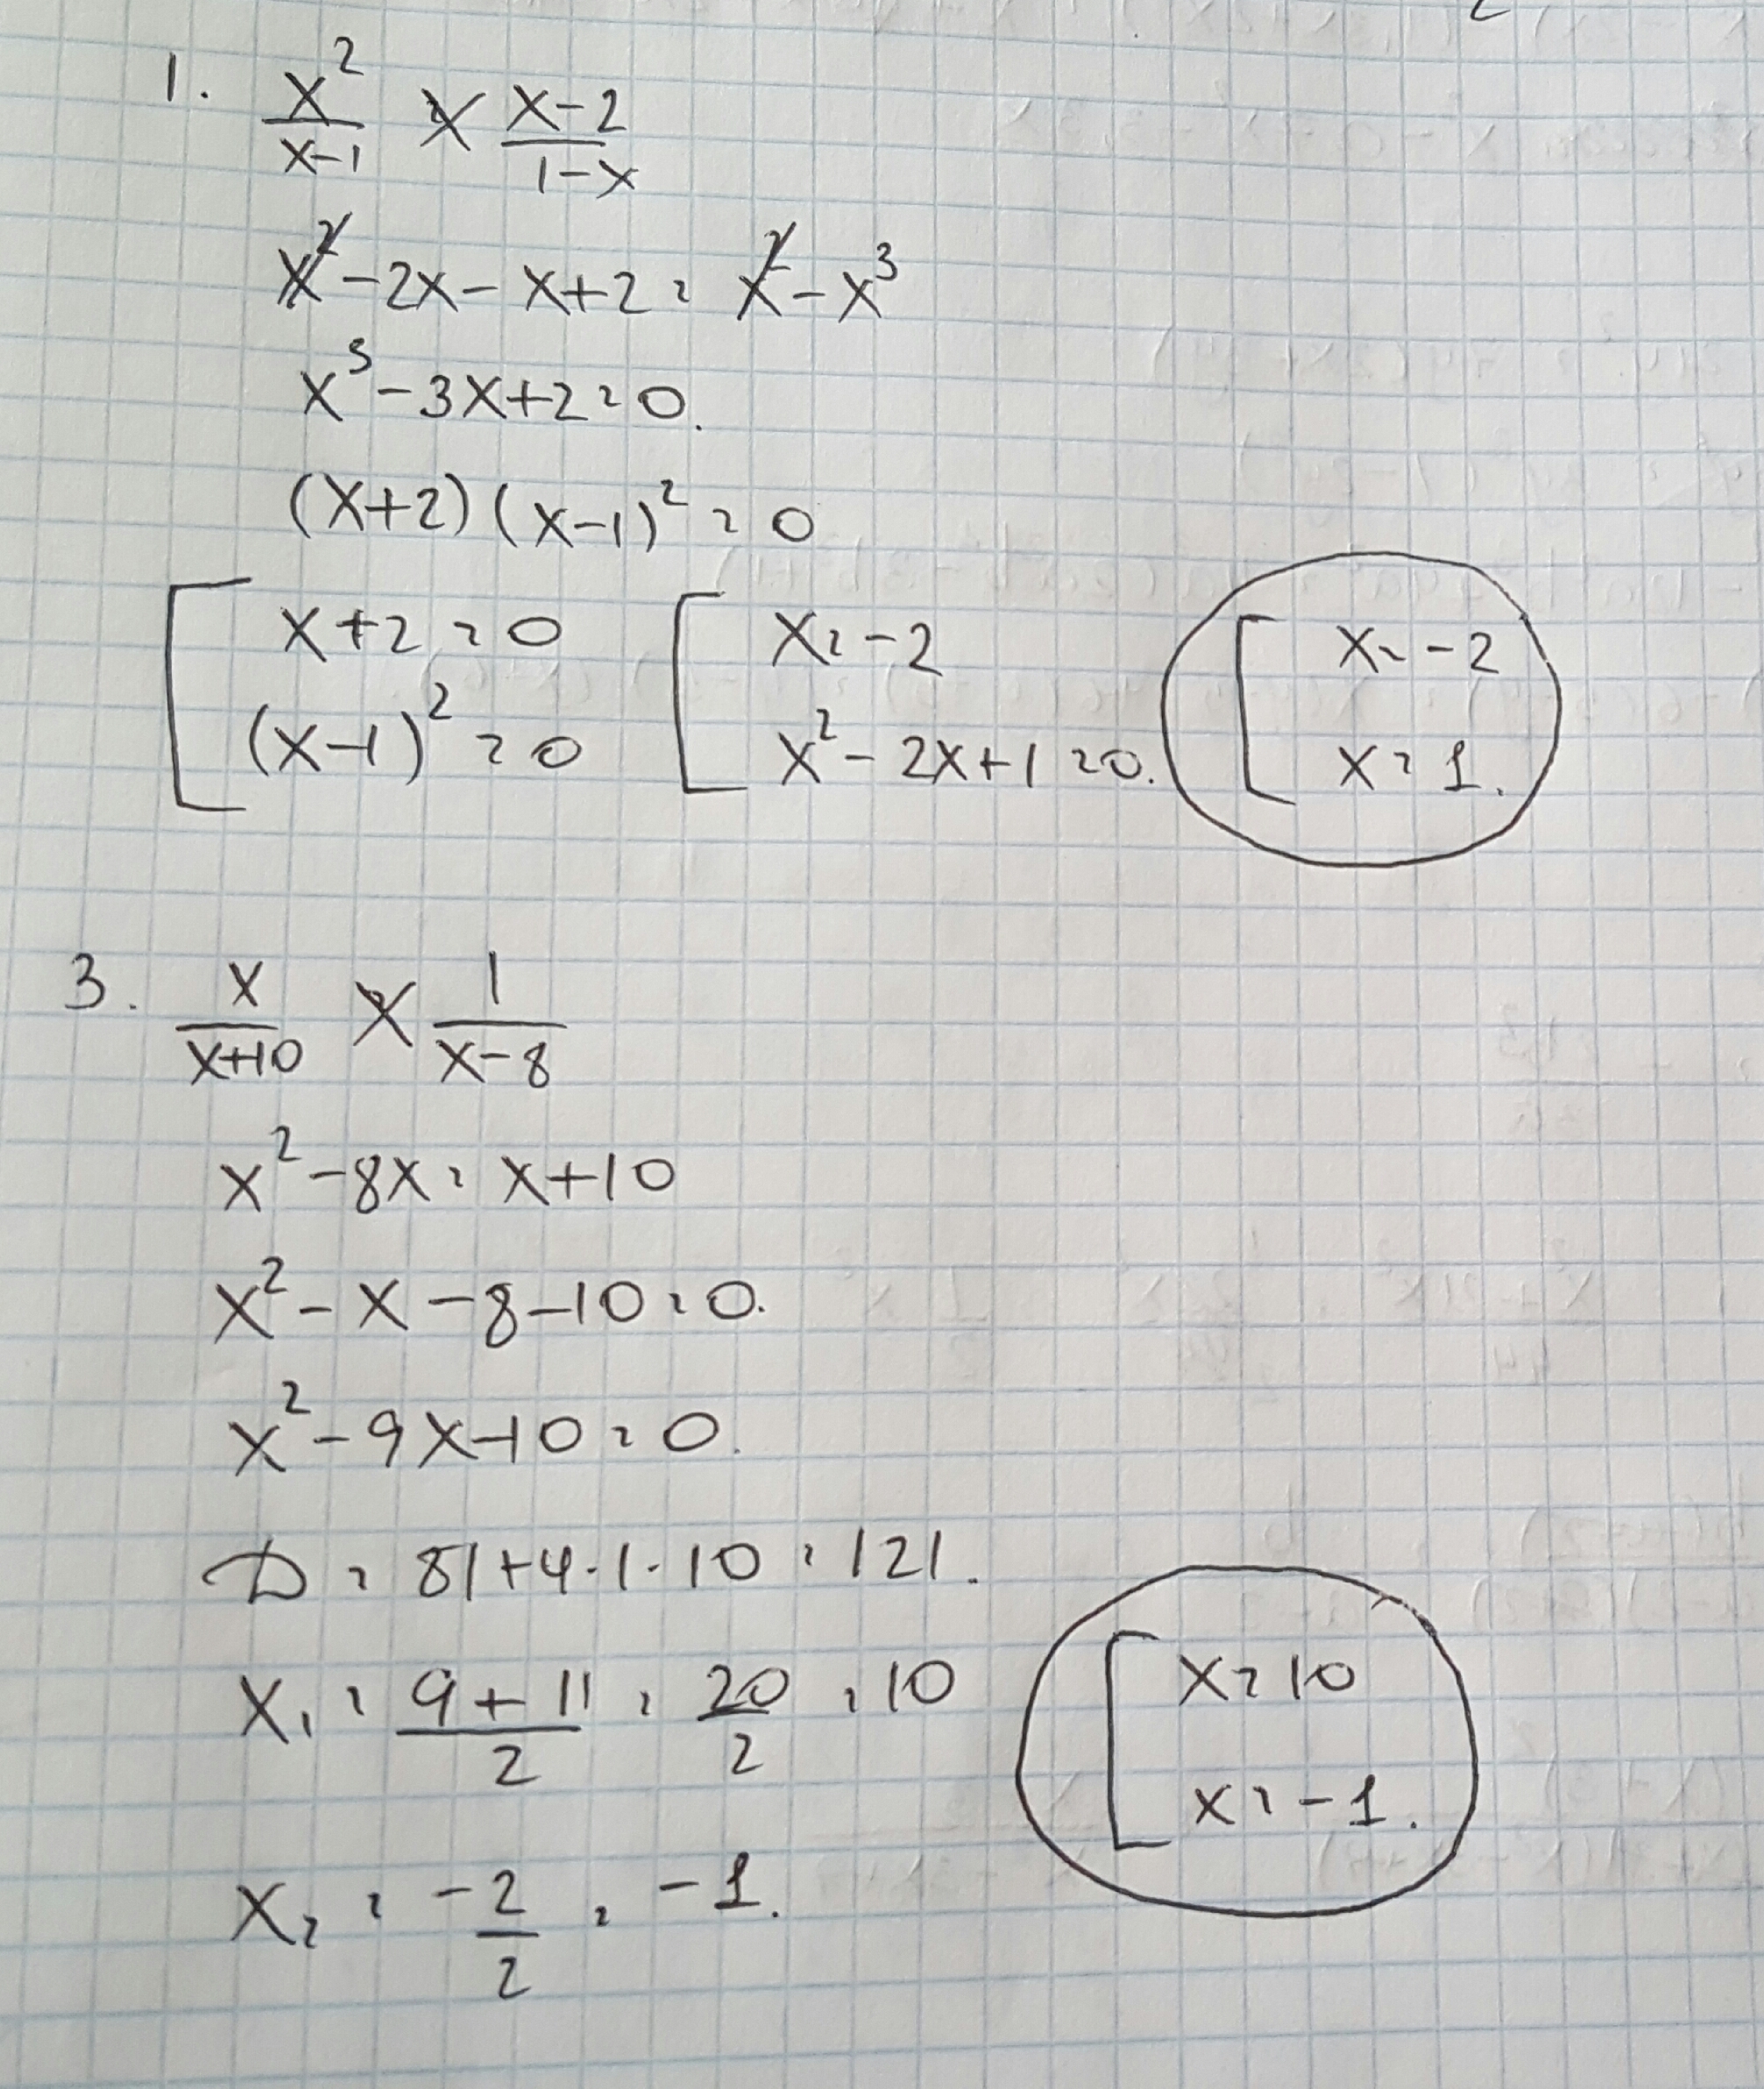 1. x²/(x-1) = (x-2)/(1-x)
x² - 2x - x + 2 = x² - x³
x³ - 3x + 2 = 0.
(x+2)(x-1)² = 0
[ x+2 = 0 [ x = -2 [ x = -2
(x-1)² = 0 x² - 2x + 1 = 0. x = 1.
3. x/(x+10) = 1/(x-8)
x² - 8x = x + 10
x² - x - 8 - 10 = 0.
x² - 9x - 10 = 0.
D = 81 + 4·1·10 = 121.
x₁ = (9+11)/2 = 20/2 = 10 [ x = 10
x = -1.
x₂ = -2/2 = -1.